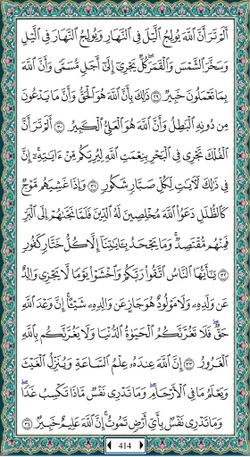 أَلَمْ تَرَ أَنَّ ٱللَّهَ يُولِجُ ٱلَّيْلَ فِى ٱلنَّهَارِ وَيُولِجُ ٱلنَّهَارَ فِى ٱلَّيْلِ
وَسَخَّرَ ٱلشَّمْسَ وَٱلْقَمَرَ كُلٌّ يَجْرِىٓ إِلَىٰٓ أَجَلٍ مُّسَمًّى وَأَنَّ ٱللَّهَ
بِمَا تَعْمَلُونَ خَبِيرٌ ٢٩ ذَٰلِكَ بِأَنَّ ٱللَّهَ هُوَ ٱلْحَقُّ وَأَنَّ مَا يَدْعُونَ
مِن دُونِهِ ٱلْبَٰطِلُ وَأَنَّ ٱللَّهَ هُوَ ٱلْعَلِىُّ ٱلْكَبِيرُ ٣٠ أَلَمْ تَرَ أَنَّ
ٱلْفُلْكَ تَجْرِى فِى ٱلْبَحْرِ بِنِعْمَتِ ٱللَّهِ لِيُرِيَكُم مِّنْ ءَايَٰتِهِۦٓ إِنَّ
فِى ذَٰلِكَ لَءَايَٰتٍ لِّكُلِّ صَبَّارٍ شَكُورٍ ٣١ وَإِذَا غَشِيَهُم مَّوْجٌ
كَٱلظُّلَلِ دَعَوُا۟ ٱللَّهَ مُخْلِصِينَ لَهُ ٱلدِّينَ فَلَمَّا نَجَّىٰهُمْ إِلَى ٱلْبَرِّ
فَمِنْهُم مُّقْتَصِدٌ وَمَا يَجْحَدُ بِـَٔايَٰتِنَآ إِلَّا كُلُّ خَتَّارٍ كَفُورٍ
٣٢ يَٰٓأَيُّهَا ٱلنَّاسُ ٱتَّقُوا۟ رَبَّكُمْ وَٱخْشَوْا۟ يَوْمًا لَّا يَجْزِى وَالِدٌ
عَن وَلَدِهِۦ وَلَا مَوْلُودٌ هُوَ جَازٍ عَن وَالِدِهِۦ شَيْـًٔا إِنَّ وَعْدَ ٱللَّهِ
حَقٌّ فَلَا تَغُرَّنَّكُمُ ٱلْحَيَوٰةُ ٱلدُّنْيَا وَلَا يَغُرَّنَّكُم بِٱللَّهِ
ٱلْغَرُورُ ٣٣ إِنَّ ٱللَّهَ عِندَهُۥ عِلْمُ ٱلسَّاعَةِ وَيُنَزِّلُ ٱلْغَيْثَ
وَيَعْلَمُ مَا فِى ٱلْأَرْحَامِ وَمَا تَدْرِى نَفْسٌ مَّاذَا تَكْسِبُ غَدًا
وَمَا تَدْرِى نَفْسٌۢ بِأَىِّ أَرْضٍ تَمُوتُ إِنَّ ٱللَّهَ عَلِيمٌ خَبِيرٌۢ ٣٤
414